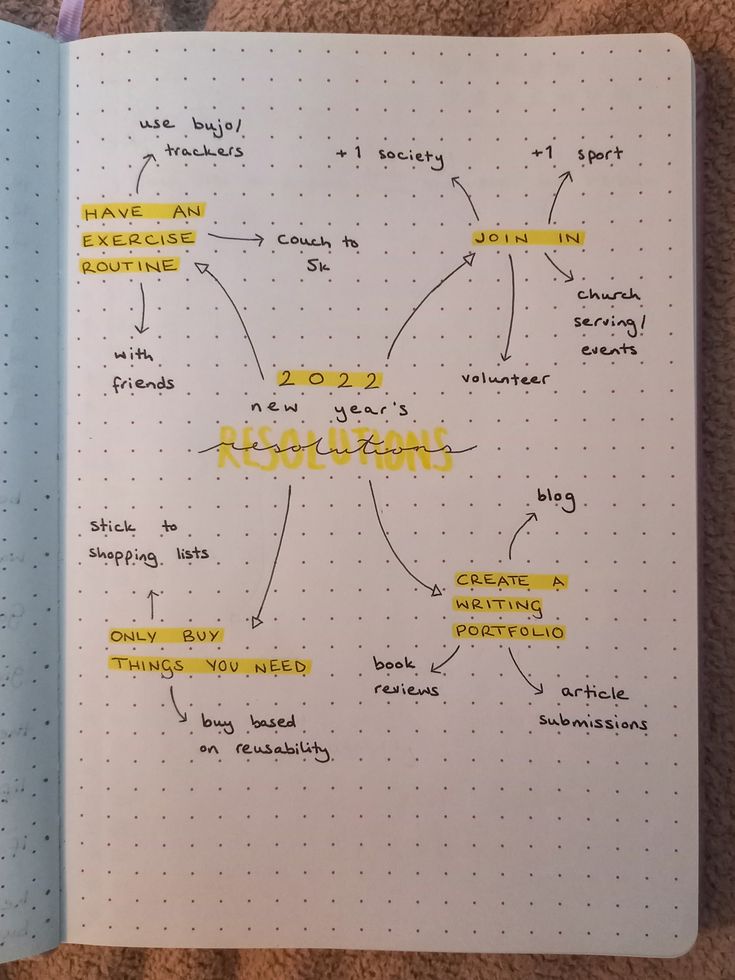 2022
new year's
RESOLUTIONS
resolutions
HAVE AN
EXERCISE
ROUTINE
use bujo/
trackers
couch to
5k
with
friends
JOIN IN
+1 society
+1 sport
church
serving/
events
volunteer
ONLY BUY
THINGS YOU NEED
stick to
shopping lists
buy based
on reusability
CREATE A
WRITING
PORTFOLIO
blog
book
reviews
article
submissions